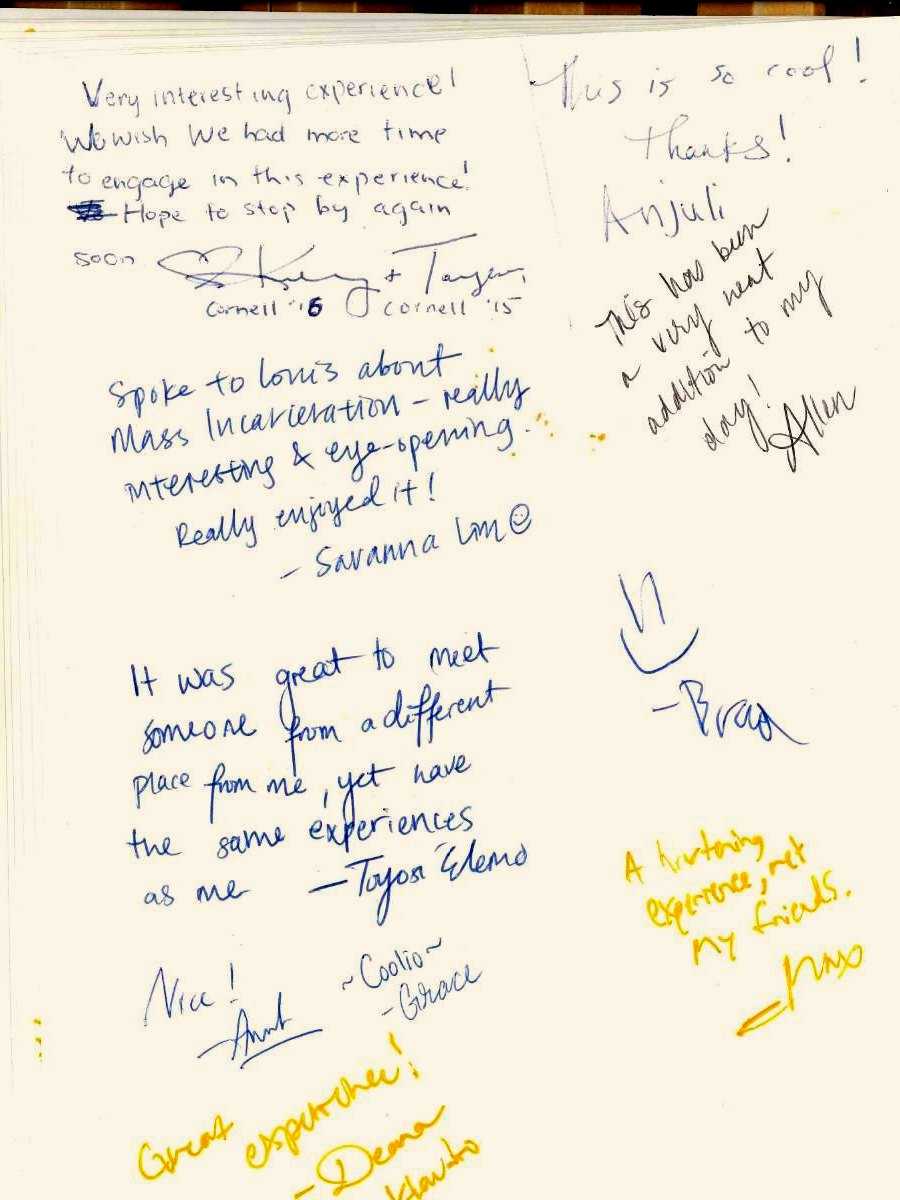 Very interesting experience!
We wish We had more time
to engage in this experience!
Hope to stop by again
soon
+
Cornell '16 Cornell '15
This is so cool!
Thanks!
Anjuli
This has been
a very neat
addition to my
day!
Allen
Spoke to Louis about
Mass Incarceration - really
interesting & eye-opening.
Really enjoyed it!
- Savanna Lim
- Brad
It was great to meet
someone from a different
place from me, yet have
the same experiences
as me - Toyosi Elemo
A
experience, met
my friends.
- Max
Nice!
~Coolio~
- Grace
Great experience!
- Deana